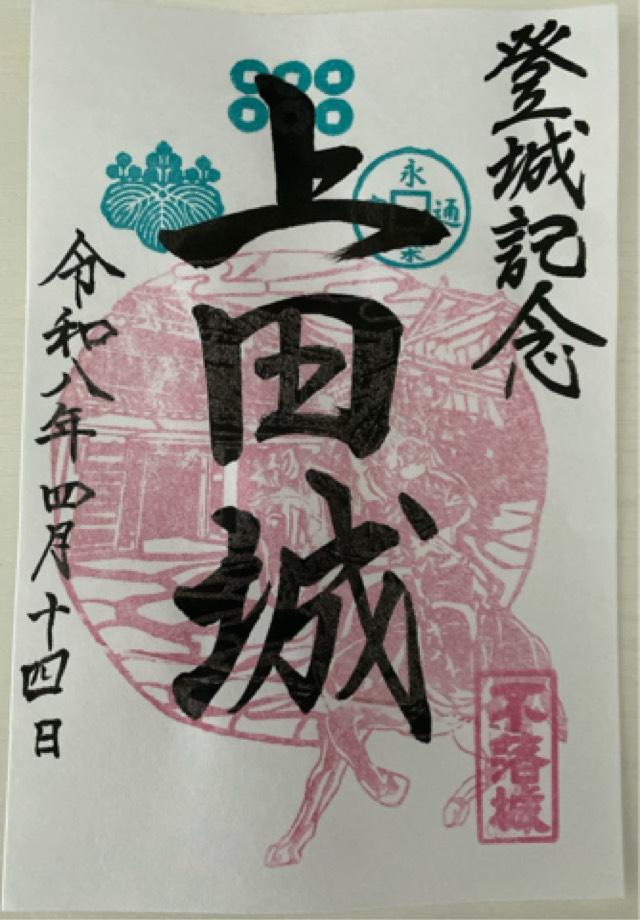 登城記念
上田城
令和八年四月十四日
永
通
不落城